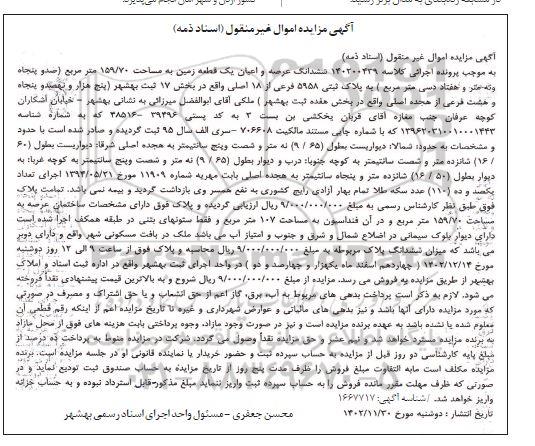 آگهی مزایده اموال غیرمنقول (اسناد ذمه)
آگهی مزایده اموال غیر منقول (اسناد ذمه)
به موجب پرونده اجرائی کلاسه ۱۴۰۲۰۰۴۳۹ ششدانگ عرصه و اعیان یک قطعه زمین به مساحت ۱۵۹/۷۰ متر مربع (صدو پنجاه
ونه متر و هفتاد دسی متر مربع ) به پلاک ثبتی ۵۹۵۸ فرعی از ۱۸ اصلی واقع در بخش ۱۷ ثبت بهشهر (پنج هزار و نهصدو پنجاه
و هشت فرعی از هجده اصلی واقع در بخش هفده ثبت بهشهر ) ملکی آقای ابوالفضل میرزائی به نشانی بهشهر – خیابان آشکاران
کوچه عرفان جنب مغازه آقای قربان یخکشی بن بست ۳ به کد پستی ۳۹۴۹۶ – ۴۸۵۱۶ که به شماره شناسه
۱۳۹۶۲۰۳۱۰۰۱۰۰۰۱۴۴۳ که با شماره چاپی مستند مالکیت ۷۰۶۶۰۸ –سری الف سال ۹۵ ثبت گردیده و صادر شده است با حدود
و مشخصات به حدود: شمالا: دیواریست بطول (۶۵ / ۹) نه متر و شصت وپنج سانتیمتر به هجده اصلی شرقا: دیواریست بطول (۶۰
/ ۱۶) شانزده متر و شصت سانتیمتر به کوچه جنوبا: درب و دیوار بطول (۶۵ / ۹) نه متر و شصت وپنج سانتیمتر به کوچه غربا: به
دیوار بطول (۵۰ / ۱۶) شانزده متر و پنجاه سانتیمتر به هجده اصلی بابت مهریه شماره ۱۱۹۰۹ مورخ ۱۳۹۴/۰۵/۲۱ اجرای تعداد
یکصد و ده (۱۱۰) عدد سکه طلا تمام بهار آزادی رایج کشوری به نفع همسر وی بازداشت گردید و بیمه نمی باشد. تمامت پلاک
فوق طبق نظر کارشناس رسمی به مبلغ ۹/۰۰۰/۰۰۰/۰۰۰ ریال ارزیابی گردیده و پلاک فوق دارای مشخصات ساختمان عرصه به
مساحت ۱۵۹/۷۰ متر مربع و در آن فنداسیون به مساحت ۱۰۷ متر مربع و فقط ستونهای بتنی در طبقه همکف اجرا شده است
دارای دیوار بلوک سیمانی در اضلاع شمال و شرق و جنوب و امتیاز آب می باشد ملک در بافت مسکونی شهر واقع و دارای دوبر
می باشد که میزان ششدانگ پلاک مربوطه به مبلغ ۹/۰۰۰/۰۰۰/۰۰۰ ریال محاسبه و پلاک فوق از ساعت ۹ الی ۱۲ روز دوشنبه
مورخ ۱۴۰۲/۱۲/۱۴ ( چهاردهم اسفند ماه یکهزار و چهارصد و دو ) در واحد اجرای ثبت بهشهر واقع در اداره ثبت اسناد و املاک
بهشهر از طریق مزایده به فروش می رسد. مزایده از مبلغ ۹/۰۰۰/۰۰۰/۰۰۰ ریال شروع و به بالاترین قیمت پیشنهادی نقداً فروخته
می شود. لازم به ذکر است پرداخت بدهی های مربوط به آب، برق، گاز اعم از حق انشعاب و یا حق اشتراک و مصرف در صورتی
که مورد مزایده دارای آنها باشد و نیز بدهی های مالیاتی و عوارض شهرداری و غیره تا تاریخ مزایده اعم از اینکه رقم قطعی آن
معلوم شده یا نشده باشد به عهده برنده مزایده است و نیز در صورت وجود مازاد، وجوه پرداختی بابت هزینه های فوق از محل مازاد
به برنده مزایده مسترد خواهد شد و نیم عشر و حق مزایده نقداً وصول می گردد. شرکت در مزایده منوط به پرداخت ده درصد از
مبلغ پایه کارشناسی دو روز قبل از مزایده به حساب سپرده ثبت و حضور خریدار یا نماینده قانونی او در جلسه مزایده است. برنده
مزایده مکلف است مابه التفاوت مبلغ فروش را ظرف مدت پنج روز از تاریخ مزایده به حساب صندوق ثبت تودیع نماید و در
صورتی که ظرف مهلت مقرر مانده فروش را به حساب سپرده ثبت واریز ننماید مبلغ مذکور-قابل استرداد نبوده و به حساب خزانه
واریز خواهد شد. /شناسه آگهی: ۱۶۶۷۷۱۷
تاریخ انتشار : دوشنبه مورخ ۱۴۰۲/۱۱/۳۰
محسن جعفری – مسئول واحد اجرای اسناد رسمی بهشهر